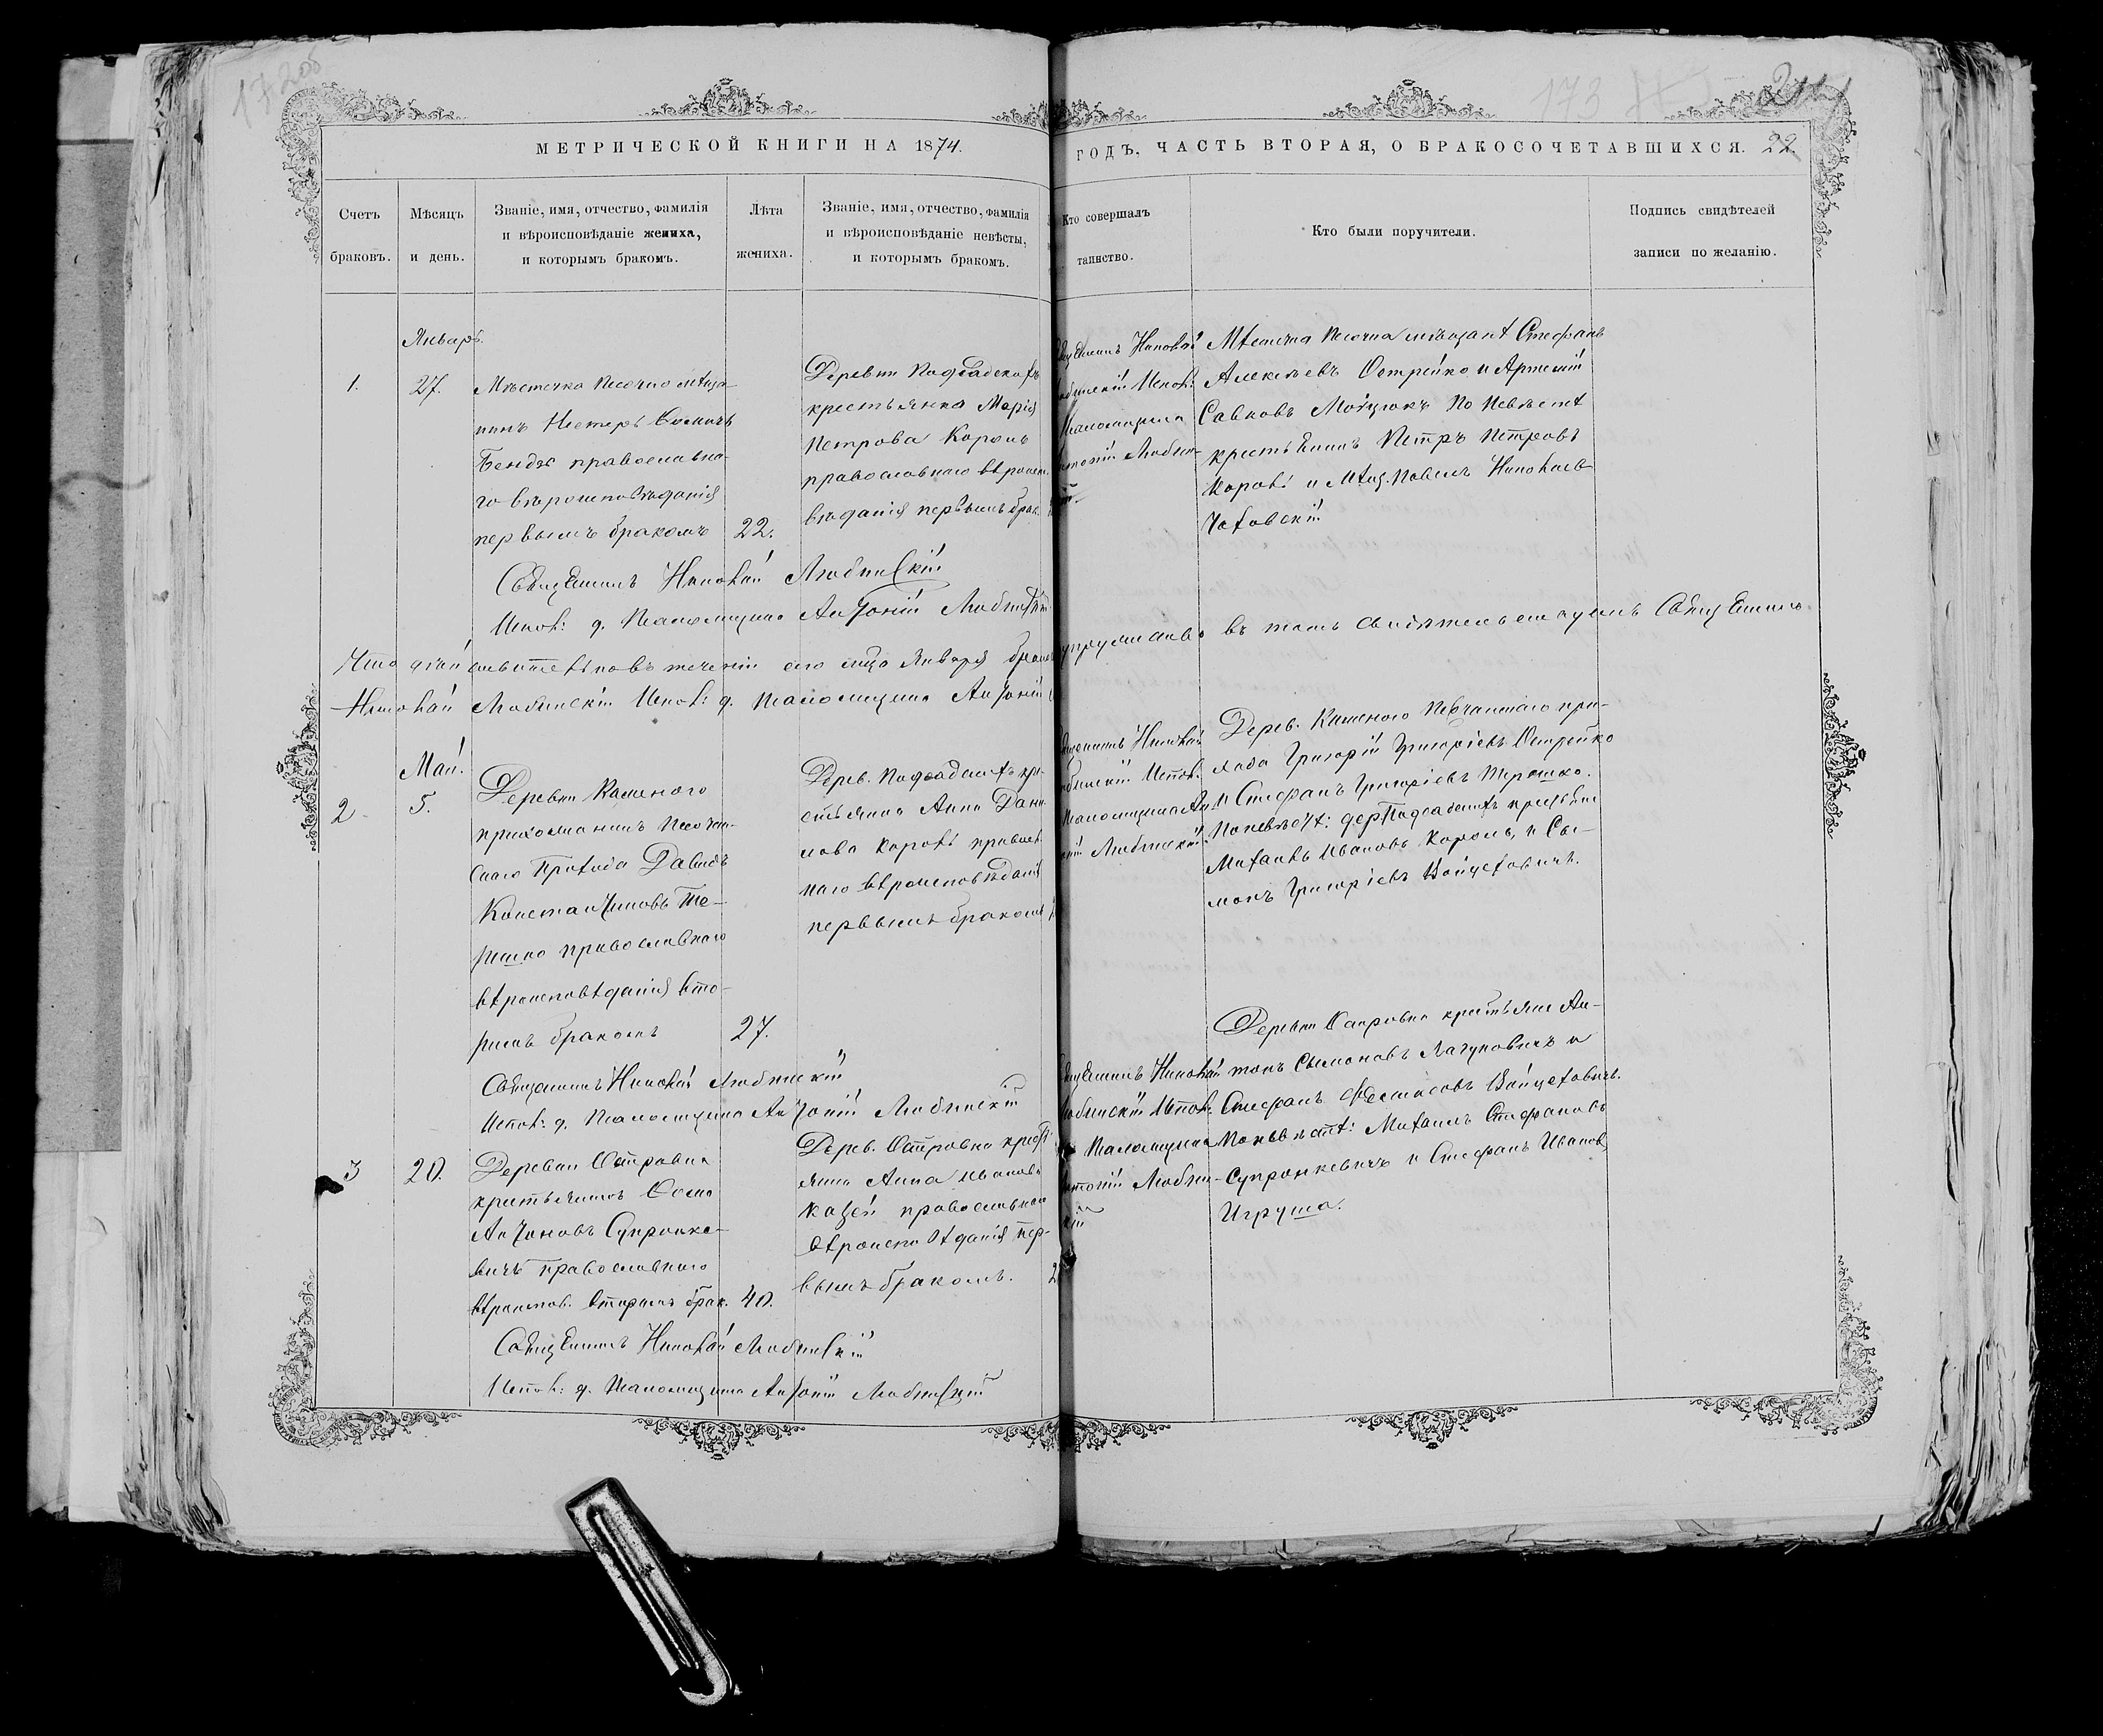 172 об
173
МЕТРИЧЕСКОЙ КНИГИ НА 1874.
ГОДЪ, ЧАСТЬ ВТОРАЯ, О БРАКОСОЧЕТАВШИХСЯ. 22.
Счетъ браковъ.
Мѣсяцъ и день.
Званіе, имя, отчество, фамилія
и вѣроисповѣданіе жениха,
и которымъ бракомъ.
Лѣта жениха.
Званіе, имя, отчество, фамилія
и вѣроисповѣданіе невѣсты,
и которымъ бракомъ.
Кто совершалъ
таинство.
Кто были поручители.
Подпись свидѣтелей
записи по желанію.
Январь.
1.
27.
Мѣстечка Песочно мѣща-
нинъ Нестеръ Ѳомичъ
православна-
го вѣроисповѣданія
первымъ бракомъ
22.
Деревни Подсадскихъ
крестьянка Марія
Петрова Король
православнаго вѣроиспо-
вѣданія первымъ брак.
Священникъ Николай
Любинскій Испол:
Псаломщика
Антоній Любин-
скій.
Мѣстечка Песочна мѣщане Стефанъ
Алексѣевъ Острейко и Артемій
Савковъ По невѣстѣ
крестьянинъ Петръ Петровъ
Король и мѣщ. Павелъ Николаев
Священникъ Николай Любинскій
Испол: д. Псаломщика Антоній Любинскій
въ томъ свидѣтельствуемъ Священникъ
Николай Любинскій Испол: д. Псаломщика Антоній
Май.
2.
5.
Деревни Каменого
прихожанинъ Песочан-
скаго Прихода Давидъ
Константиновъ Те-
решко православнаго
вѣроисповѣданія вто-
рымъ бракомъ
27.
Дерев. Подсадскихъ кре-
стьянка Анна Дани-
лова Король православ-
наго вѣроисповѣданія
первымъ бракомъ
Священникъ Николай
Любинскій Испол:
Псаломщика Ан-
тоній Любинскій
Дерев. Каменого Песочанскаго при-
хода Григорій Григоріевъ Острейко
и Стефанъ Григоріевъ Терешко.
По невѣстѣ: дер. Подсадскихъ крестьяне
Михаилъ Ивановъ Король, и Сы-
монъ Григоріевъ Войцеховичъ.
Священникъ Николай Любинскій
Испол: д. Псаломщика Антоній Любинскій
3
20.
Деревни Островка
крестьянинъ Ѳома
Антоновъ Супронке-
вичъ православнаго
вѣроиспов. вторымъ брак.
40.
Дерев. Островка крест-
янка Анна Иванова
православнаго
вѣроисповѣданія пер-
вымъ бракомъ.
Священникъ Николай
Любинскій Испол:
Псаломщика
Антоній Любин-
скій
Деревни Островка крестьяне Ан-
тонъ Сымоновъ Лагуновичъ и
Стефанъ Войцеховичъ.
По невѣстѣ: Михаилъ Стефановъ
Супронкевичъ и Стефанъ Иванов.
Игруша.
Священникъ Николай Любинскій
Испол: д. Псаломщика Антоній Любинскій